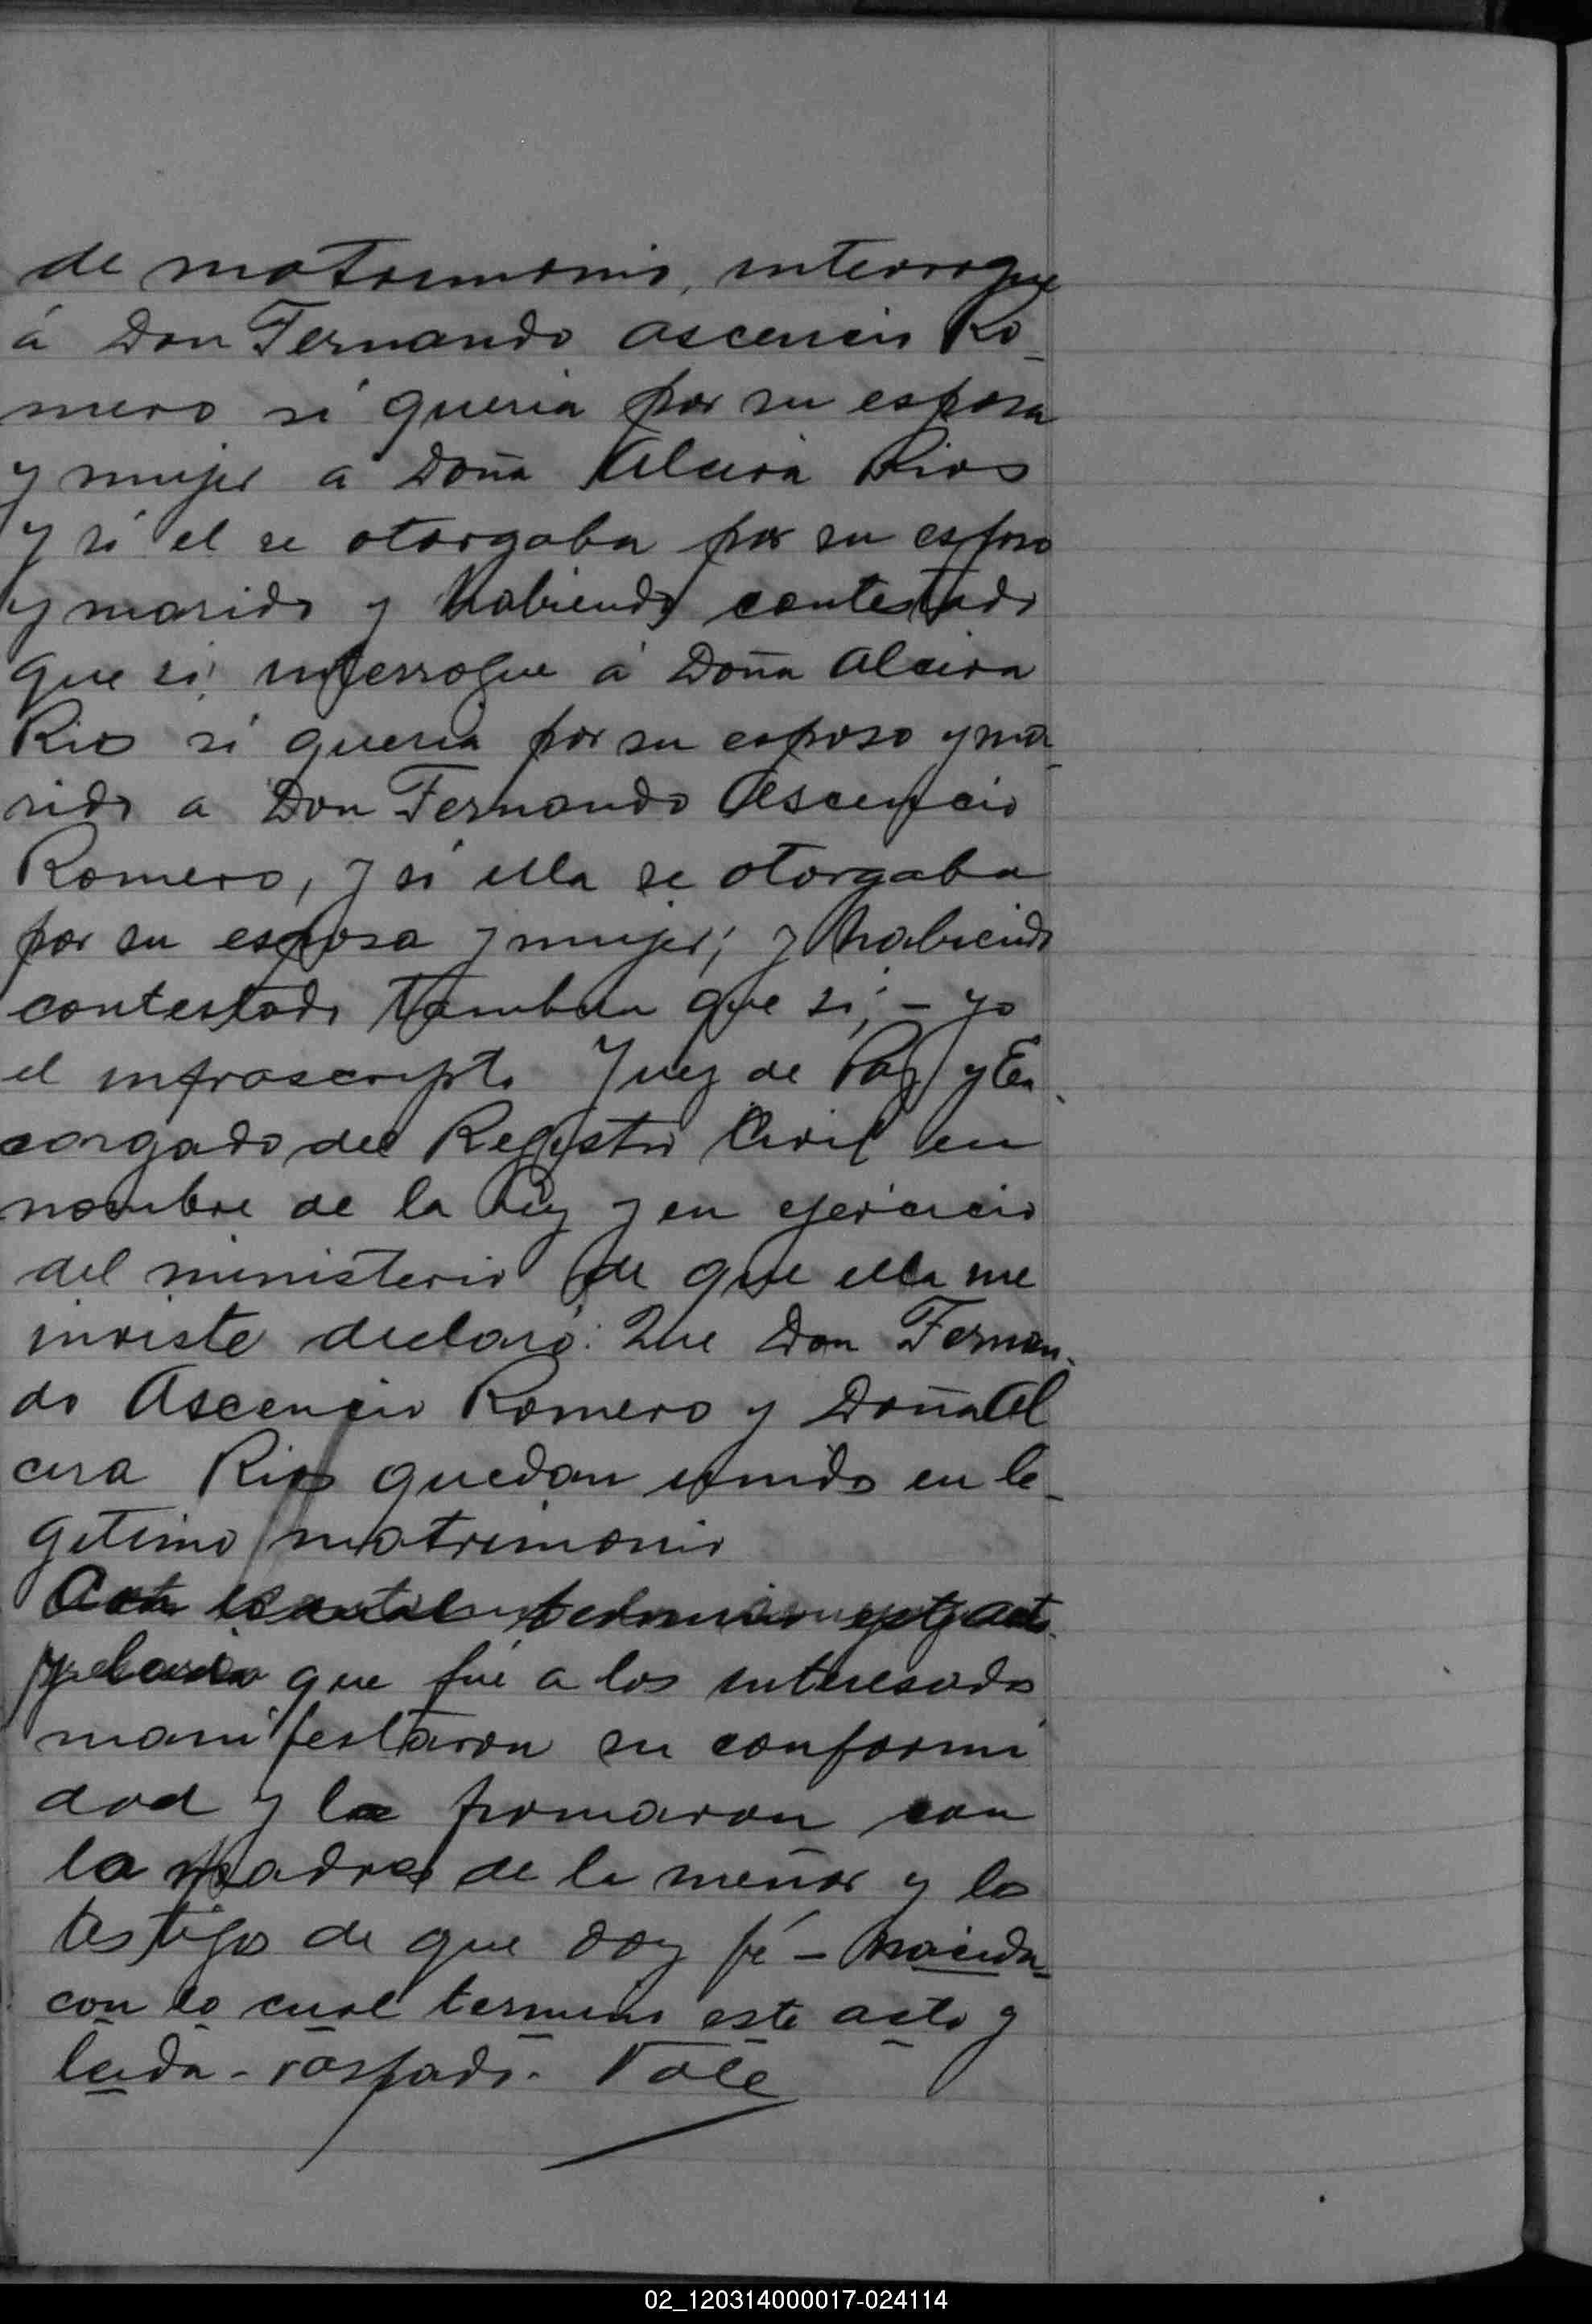 de matrimonio, interrogue
á Don Fernando Ascencio Ro-
mero si queria por su esposa
y mujer a Doña Alcira Rios
y si el se otorgaba por su esposo
y marido y habiendo contestado
que si; interrogue á Doña Alcira
Rios si queria por su esposo y ma-
rido a Don Fernando Ascencio
Romero, y si ella se otorgaba
por su esposa y mujer; y habiendo
contestado tambien que si; - yo
el infrascripto Juez de Paz y En-
cargado del Registro Civil en
nombre de la Ley y en ejercicio
del ministerio de que ella me
inviste declaró: Que Don Fernan-
do Ascencio Romero y Doña Al
cira Rios quedan unidos en le-
gitimo matrimonio
Con lo cual termino este acto
y leida que fué a los interesados
manifestaron su conformi
dad y la firmaron con
la madre de la menor y los
testigos de que doy fé -
con lo cual termino este acto y
leida - raspado - Vale
02_120314000017-024114